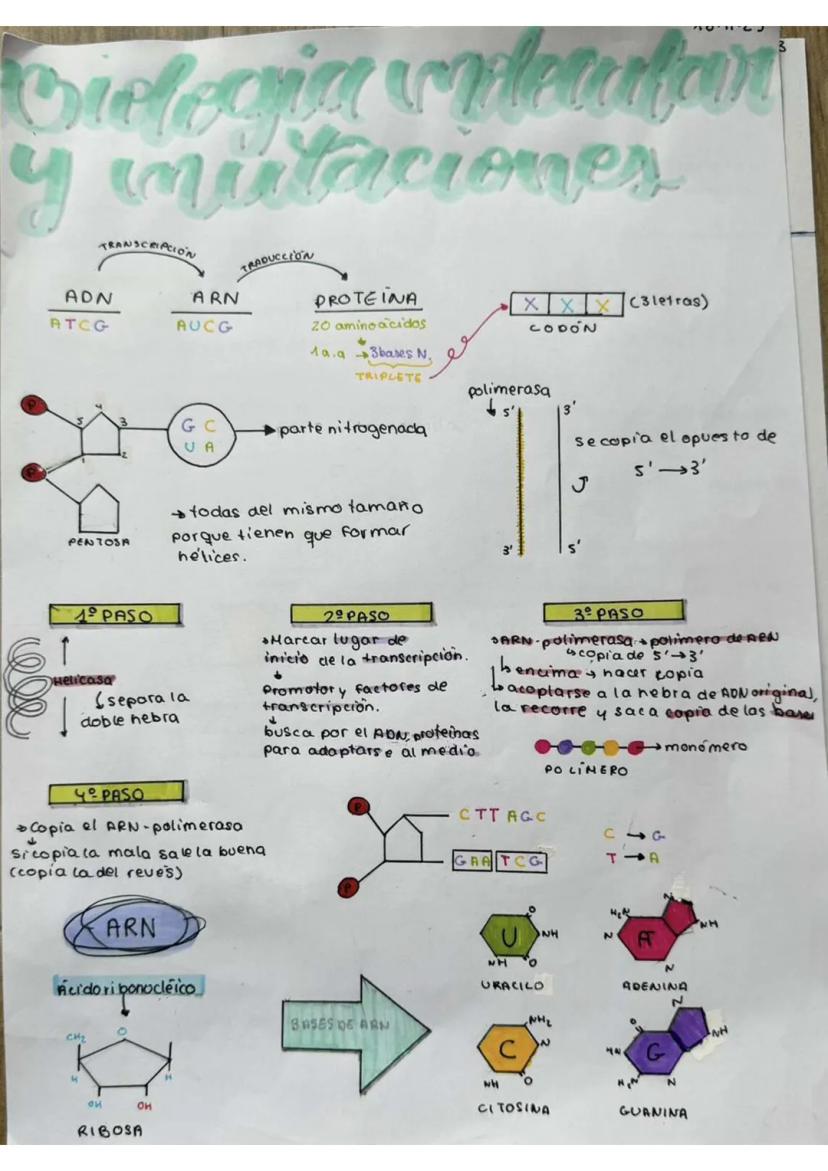 Biología molecular
y mutaciones
TRANSCRIPCIÓN
TRADUCCIÓN
ADN
ARN
PROTEÍNA
ATCG
AUCG
20 aminoácidos
1a.a → 3bases N.
TRIPLETE
X X X (3letras)
CODÓN
P
5 4 3
1 2
G C
U A
→ parte nitrogenada
P
PENTOSA
→ todas del mismo tamaño
porque tienen que formar
hélices.
polimerasa
5' 3'
se copia el opuesto de
5' → 3'
3' 5'
1º PASO
Helicasa
separa la
doble hebra
2º PASO
→ Marcar lugar de
inicio de la transcripción.
Promotor y factores de
transcripción.
busca por el ADN, proteínas
para adaptarse al medio
3º PASO
→ ARN-polimerasa → polímero de ARN
copia de 5' → 3'
encima → hacer copia
acoplarse a la hebra de ADN original,
la recorre y saca copia de las bases
→ monómero
POLÍMERO
4º PASO
→ Copia el ARN-polimerasa
si copia la mala sale la buena
(copia la del reves)
P
CTT AGC
GAA TCG
P
C → G
T → A
ARN
Ácido ribonocléico
CH₂ O
H H
OH OH
RIBOSA
BASES DE ARN
U
O
NH
NH O
URACILO
A
H₂N
N
N
NH
N
ADENINA
C
NH₂
N
NH O
CITOSINA
G
O
N
HN
NH
H₂N N
GUANINA